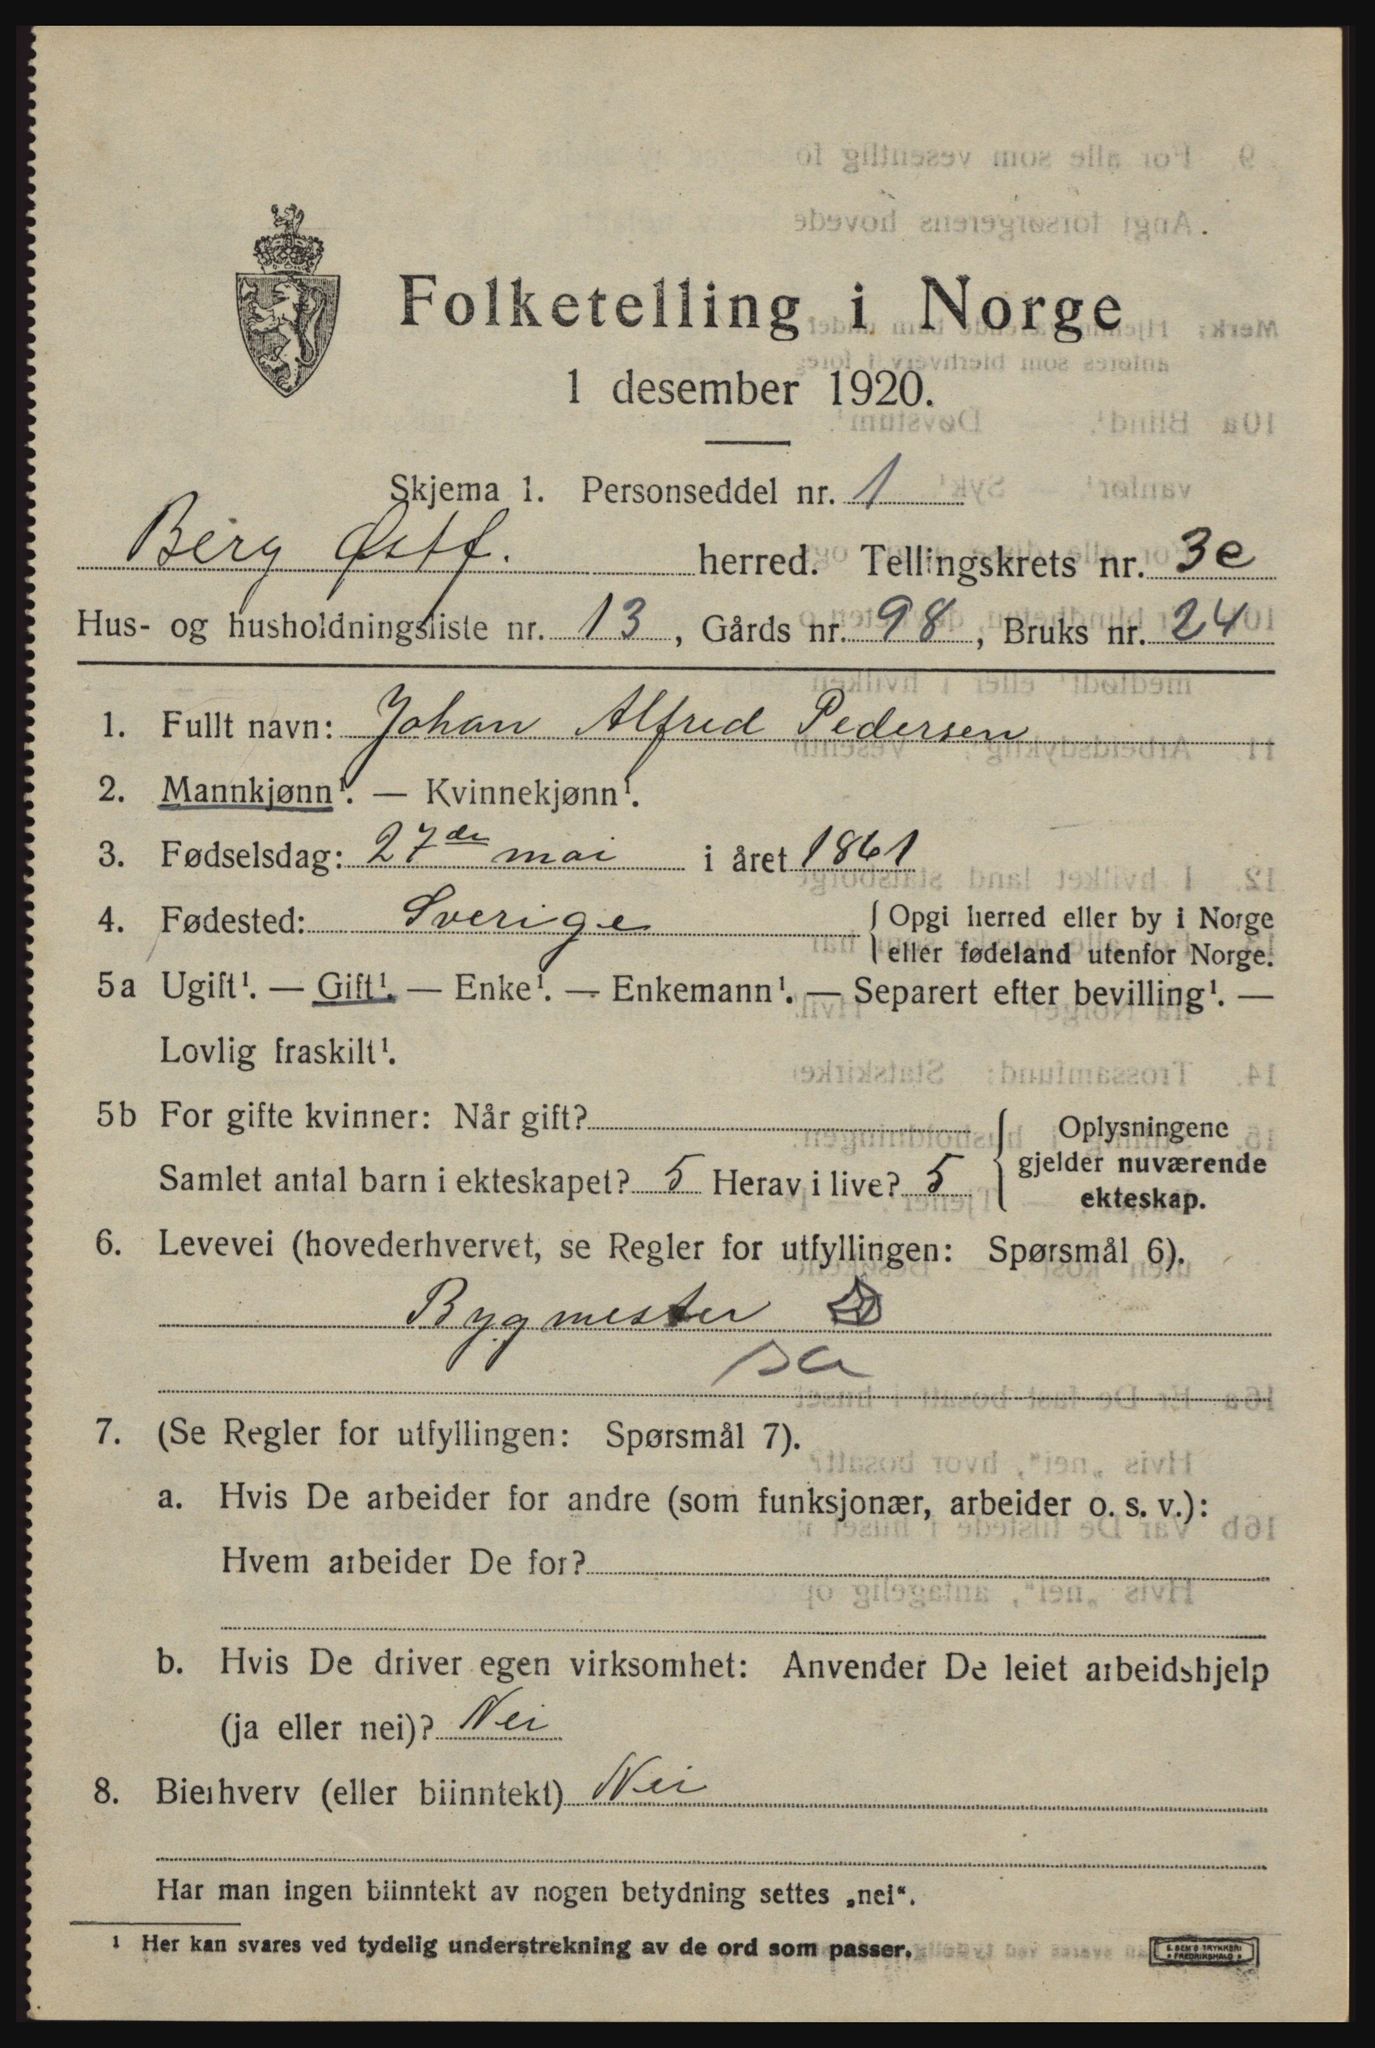 Folketelling i Norge
1 desember 1920.
Skjema 1. Personseddel nr. 1
Berg Østf. herred. Tellingskrets nr. 3e
Hus- og husholdningsliste nr. 13, Gårds nr. 98, Bruks nr. 24
1. Fullt navn: Johan Alfred Pedersen
2. Mannkjønn¹. — Kvinnekjønn¹.
3. Fødselsdag: 27de mai i året 1861
4. Fødested: Sverige { Opgi herred eller by i Norge
eller fødeland utenfor Norge.
5a Ugift¹. — Gift¹. — Enke¹. — Enkemann¹. — Separert efter bevilling¹. —
Lovlig fraskilt¹.
5b For gifte kvinner: Når gift?
Samlet antal barn i ekteskapet? 5 Herav i live? 5
{ Oplysningene
gjelder nuværende
ekteskap.
6. Levevei (hovederhvervet, se Regler for utfyllingen: Spørsmål 6).
Bygmester
7. (Se Regler for utfyllingen: Spørsmål 7).
a. Hvis De arbeider for andre (som funksjonær, arbeider o. s. v.):
Hvem arbeider De for?
b. Hvis De driver egen virksomhet: Anvender De leiet arbeidshjelp
(ja eller nei)? Nei
8. Bierhverv (eller biinntekt) Nei
Har man ingen biinntekt av nogen betydning settes „nei“.
¹ Her kan svares ved tydelig understrekning av de ord som passer.
E. SEM'S TRYKKERI
FREDRIKSHALD